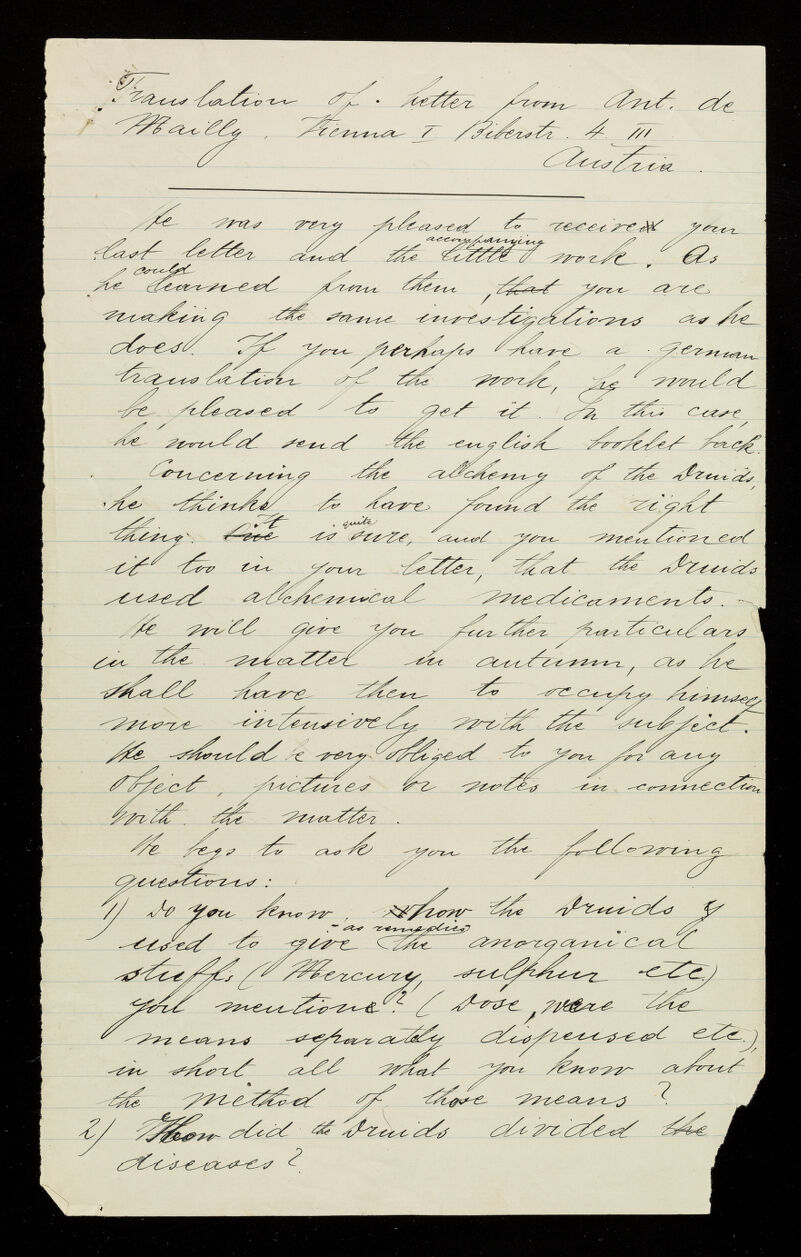 Translation of letter from Ant. de
Mailly. Vienna I Biberstr. 4 III
Austria.
He was very pleased to receive your
last letter and the accompanying little work. As
he could learned from them, that you are
makiing the same investigations as he
does. If you perhaps have a german
translation of the work, he would
be pleased to get it. In this case,
he would send the english booklet back.
Concerning the alchemy of the Druids,
he thinks to have found the right
thing. It is quite sure, and you mentioned
it too in your letter, that the Druids
used alchemical medicaments.
He will give you further particulars
in the matter in autumn, as he
shall have then to occupy himself
more intensively with the subject.
He should be very obliged to you for any
object, pictures or notes in connection
with the matter.
He begs to ask you the following
questions:
1) Do you know, how the Druids
used to give - as remedies - the anorganical
stuffs (Mercury, sulphur etc.)
you mentione? (Dose, were the
means separately dispensed etc.),
in short all what you know about
the method of those means?
2) How did the Druids divided the
diseases?